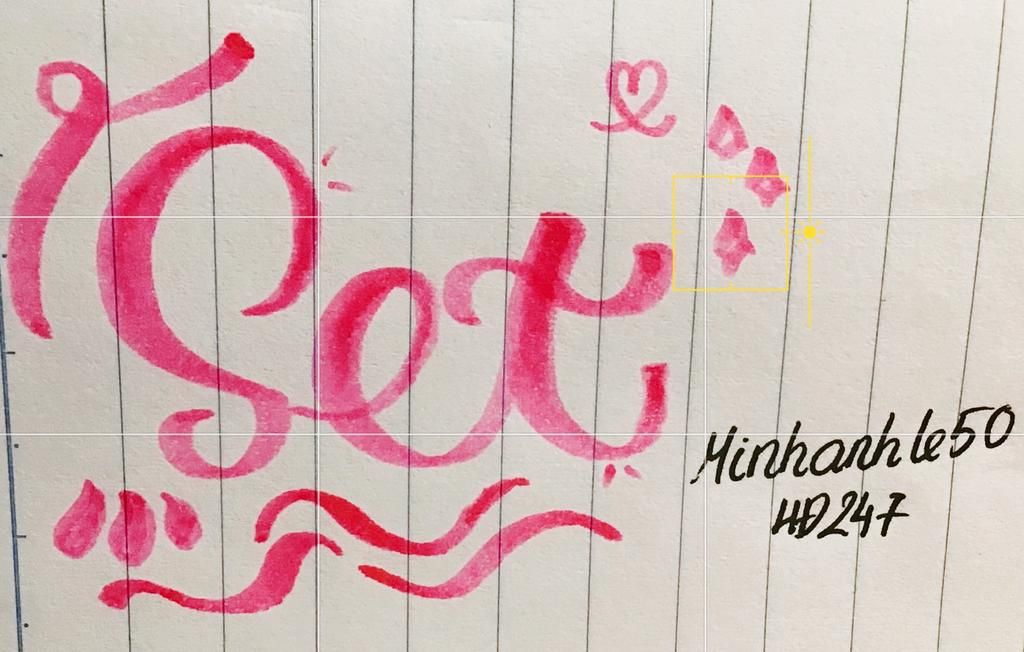 Set
Minhanhle50
HD247